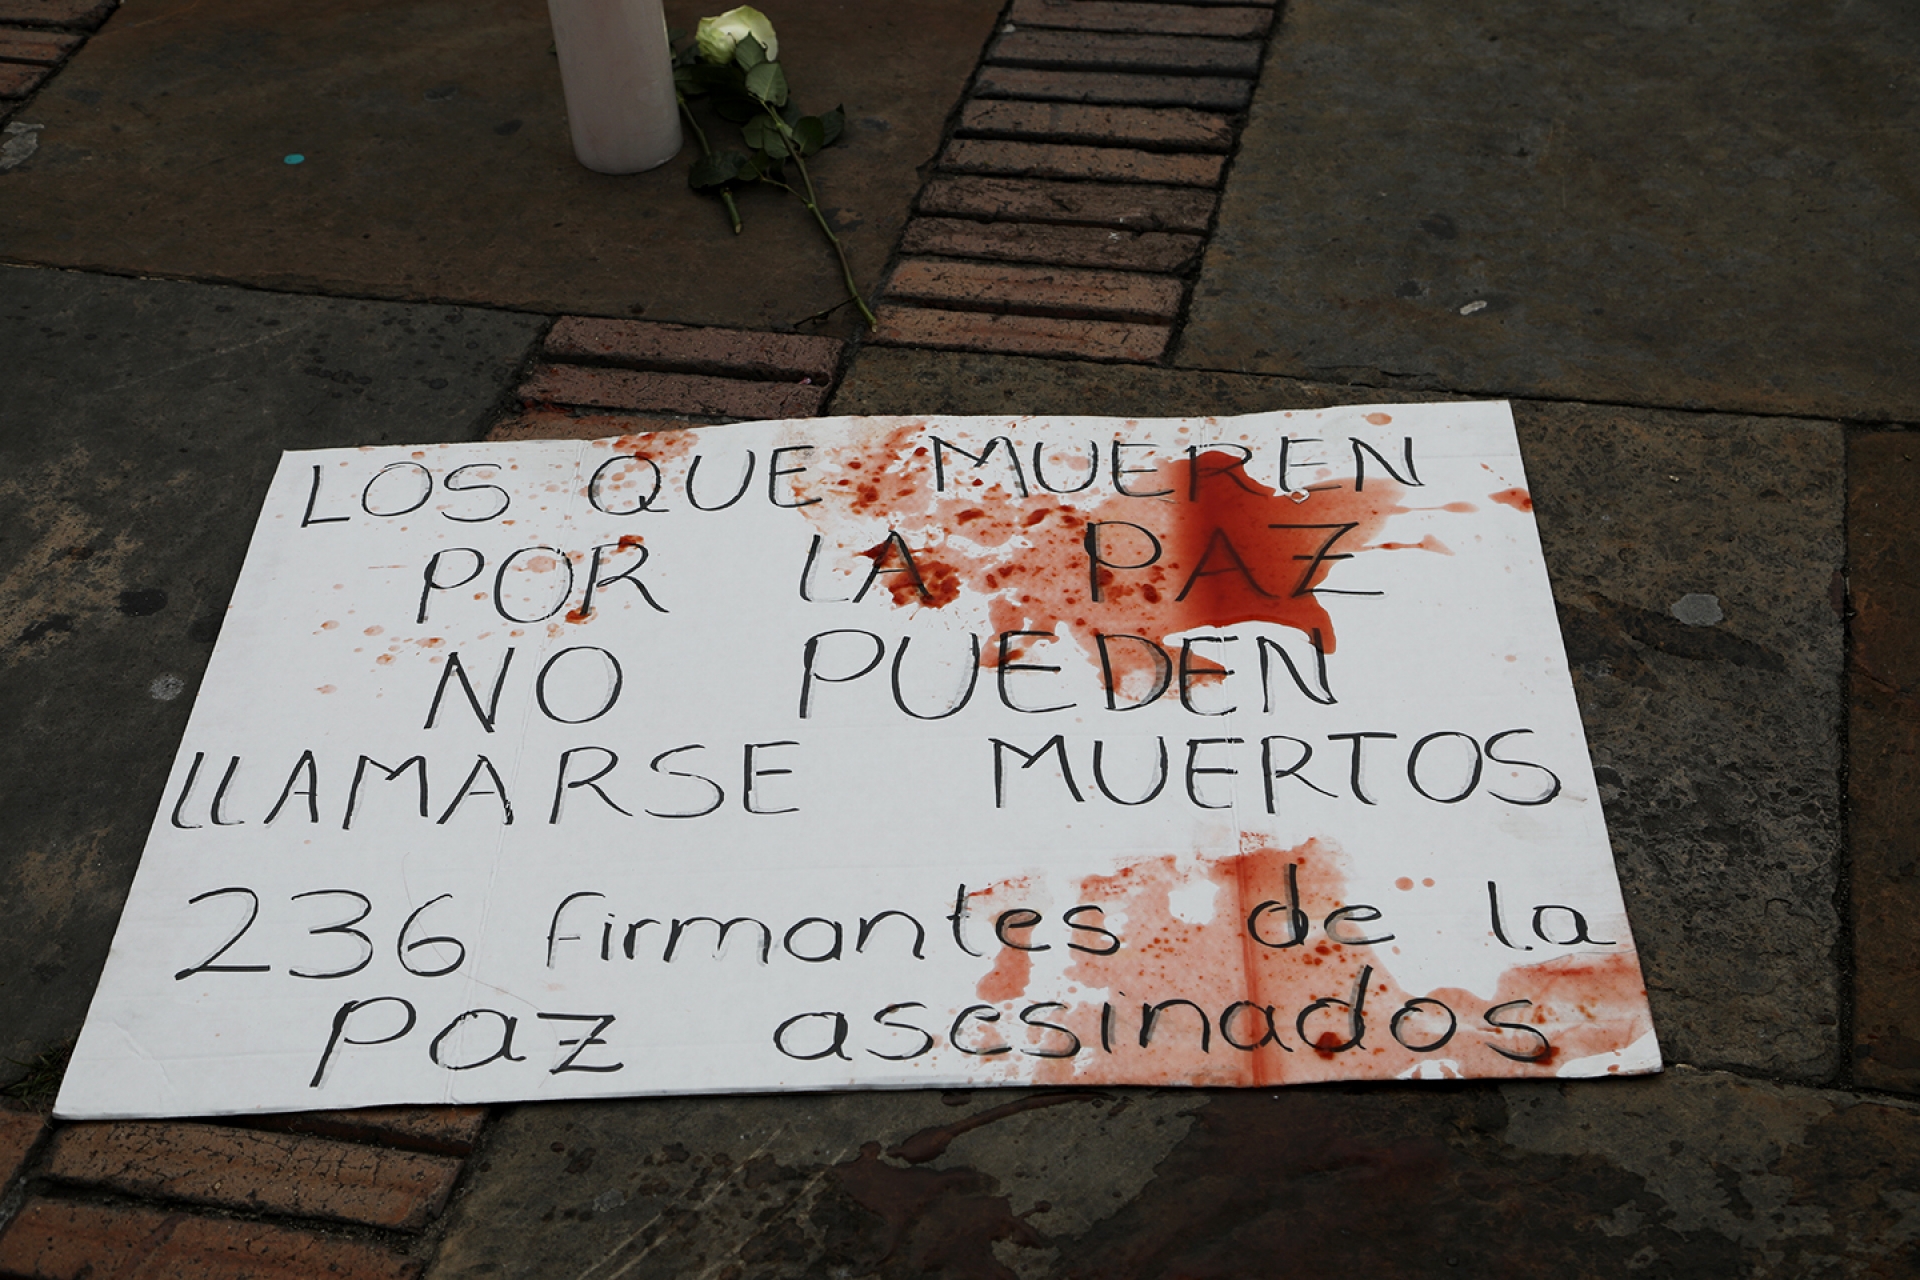 LOS QUE MUEREN
POR LA PAZ
NO PUEDEN
LLAMARSE MUERTOS
236 firmantes de la
Paz asesinados